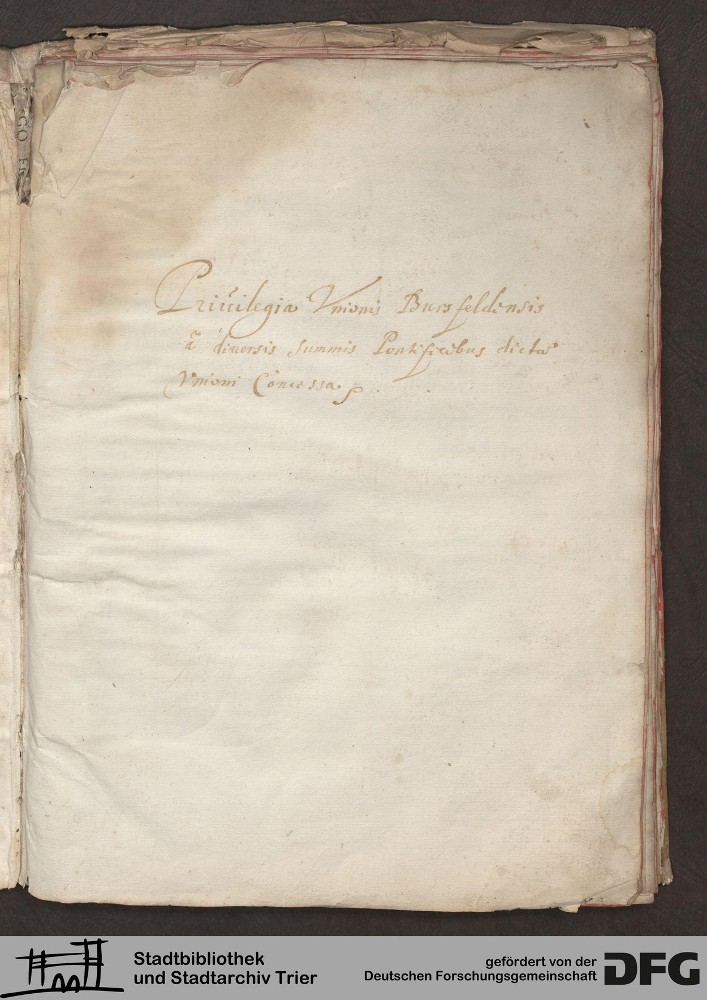 Priuilegia Vnionis Bursfeldensis
a diuersis summis Pontificibus dictae
Vnioni Concessa
Stadtbibliothek
und Stadtarchiv Trier
gefördert von der
Deutschen Forschungsgemeinschaft
DFG